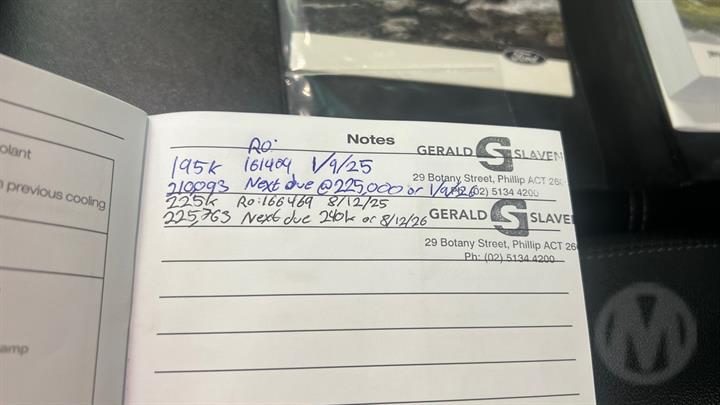 Ford
olant
n previous cooling
amp
Notes
Ro:
195k 161469 1/9/25
210093 Next due @ 225,000 or 1/9/26
225k Ro:166469 8/12/25
225,763 Next due 240k or 8/12/26
GERALD S SLAVEN
29 Botany Street, Phillip ACT 260
Ph: (02) 5134 4200
GERALD S SLAVEN
29 Botany Street, Phillip ACT 26
Ph: (02) 5134 4200
M